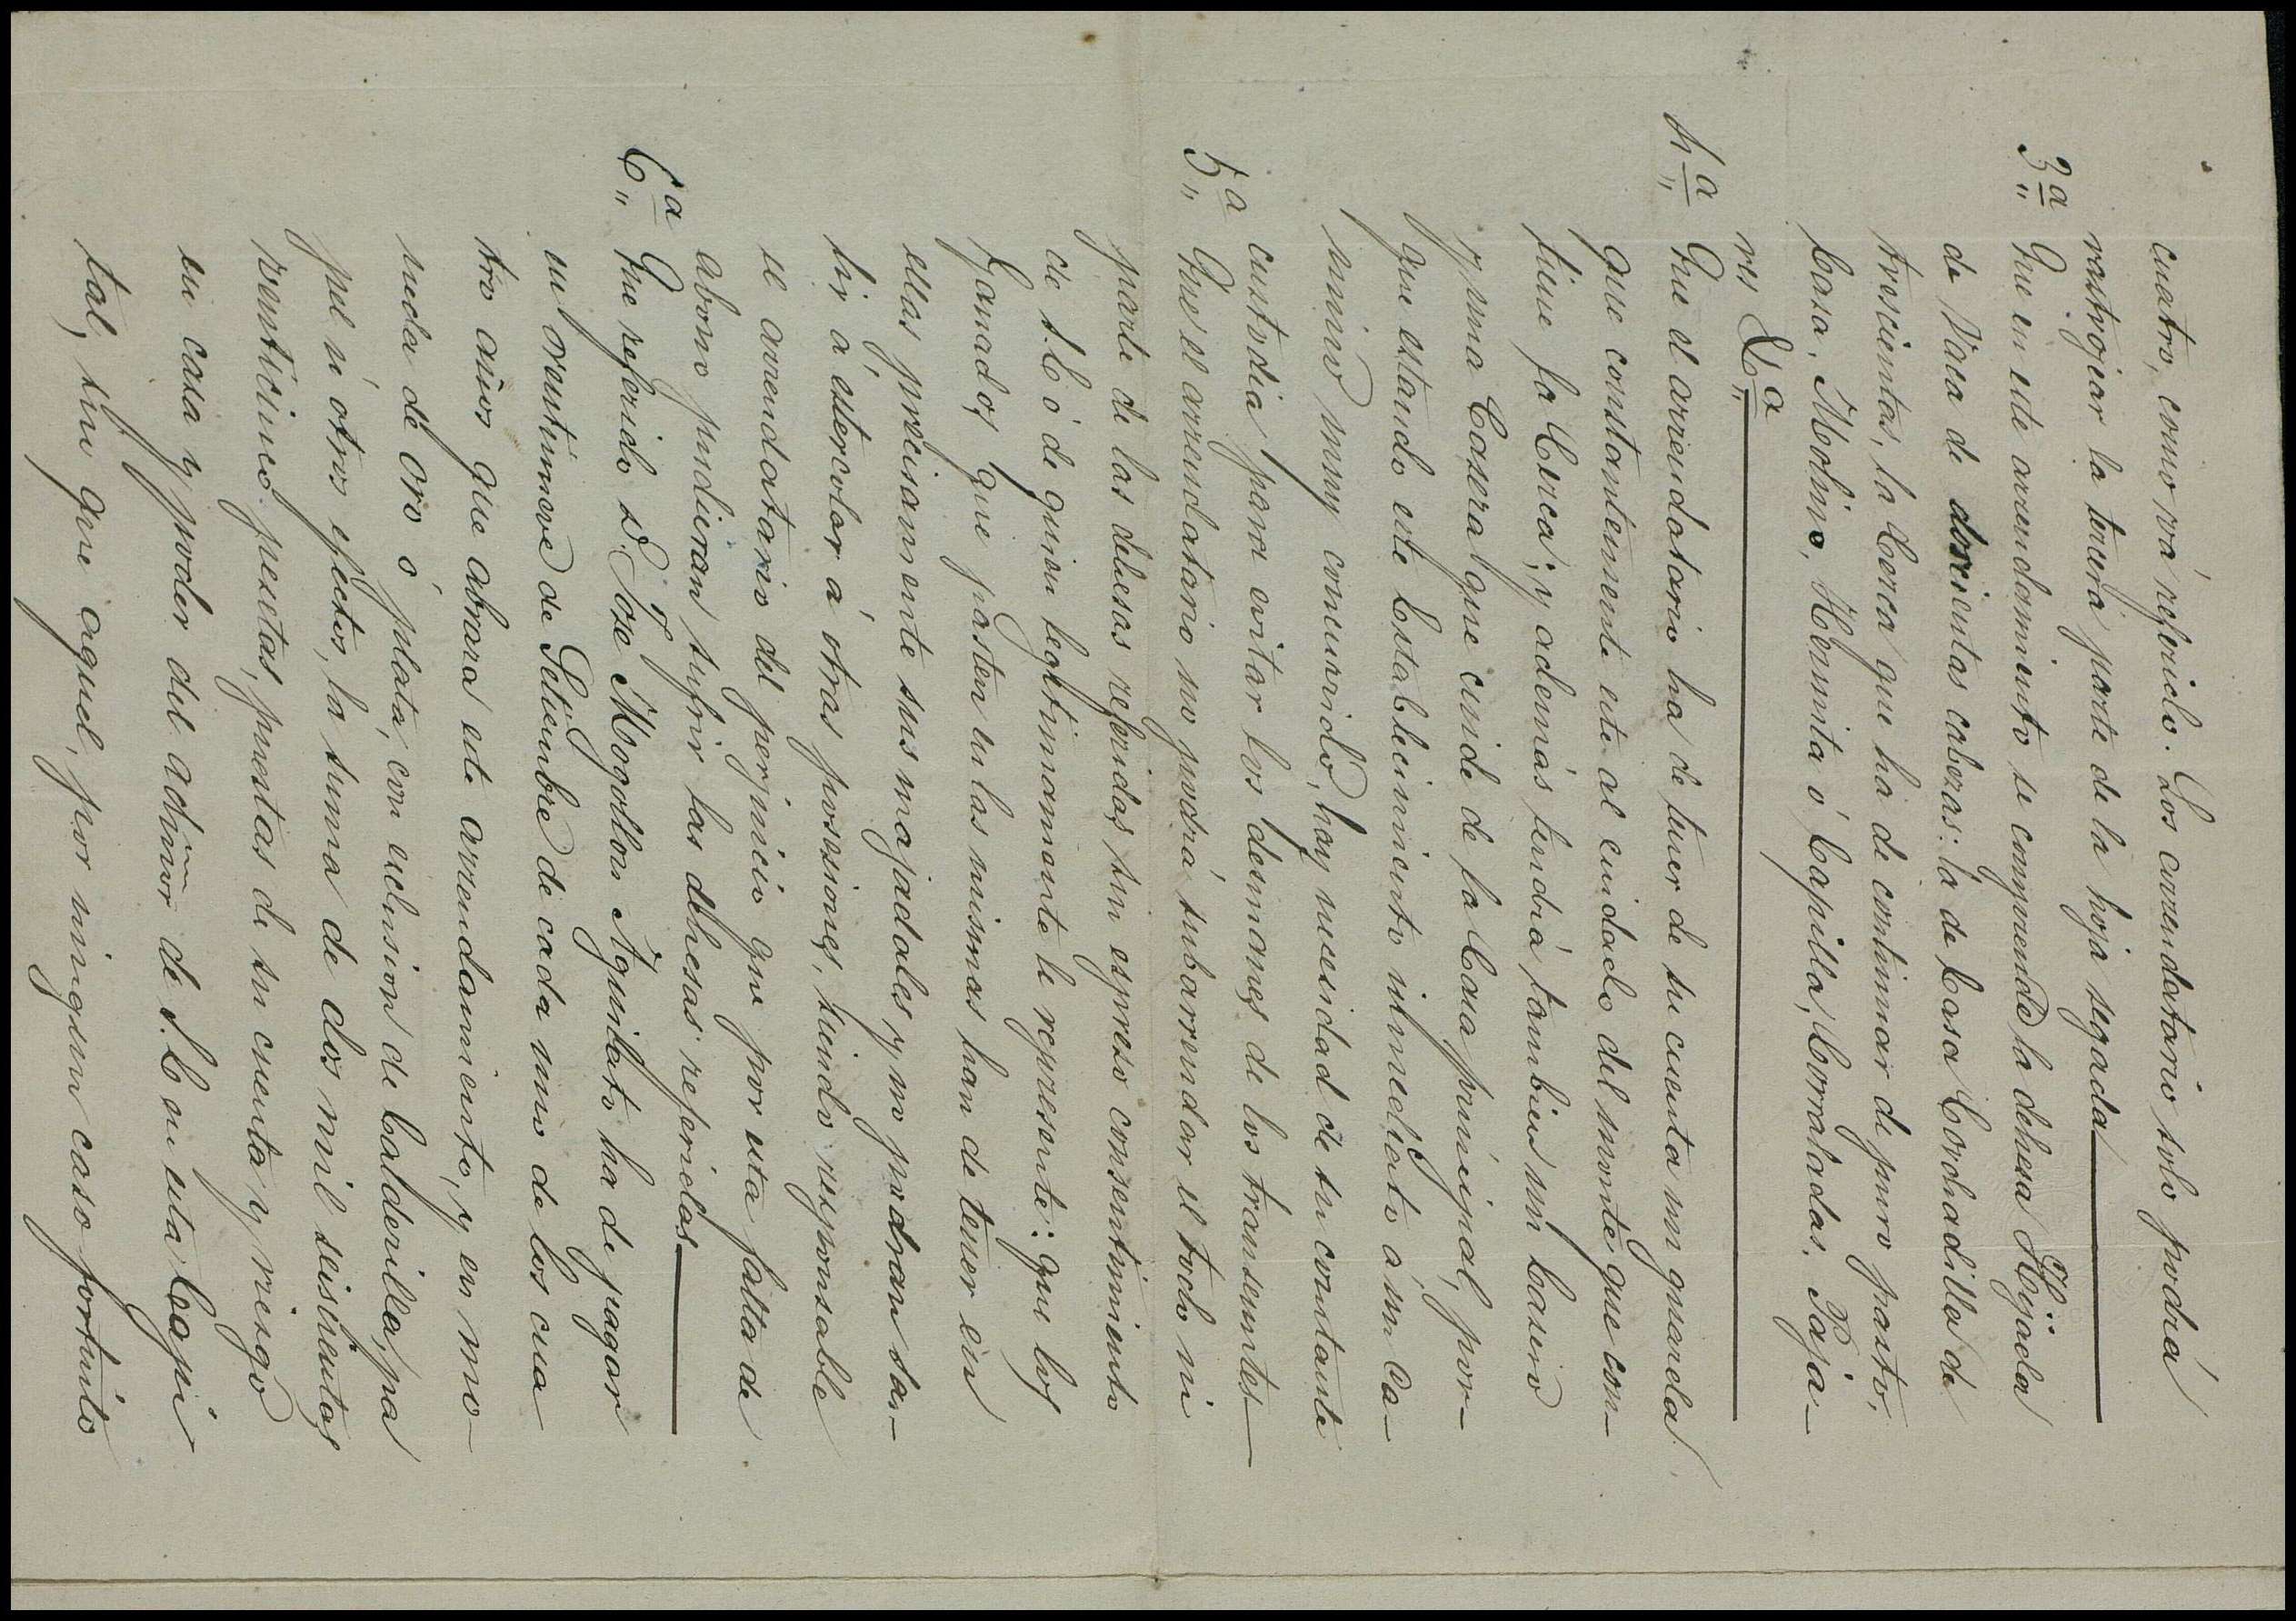 cuatro, como vá referido. Los arrendatario solo podrá
rastrojear la tercera parte de la hoja segada
3ª Que en este arrendamiento se comprende la dehesa Hijada
de Vaca de doscientas cabezas: la de Casa Corchadilla de
trescientas, la Cerca que há de continuar de puro pasto,
Casa, Molino, Hermita ó Capilla, Corraladas, Paja-
res Xª
4ª Que el arrendatario ha de tener de su cuenta un guarda
que constantemente este al cuidado del monte que con-
tiene la Cerca; y además tendrá tambien un Casero
y una Casera que cuide de la Casa principal, por-
que estando este Establecimiento inmediato á un Ca-
mino muy concurrido, hay necesidad de su constante
custodia para evitar los desmanes de los transeuntes
5ª Que el arrendatario no podrá subarrendar el todo ni
parte de las dehesas referidas sin espreso consentimiento
de S.E ó de quien legitimamente le represente: que los
Ganados que pasten en las mismas han de tener en
ellas precisamente sus majadales y no podran sa-
lir á estercolar á otras posesiones, siendo responsable
el arrendatario del perjuicio que por esta falta de
abono pudieran sufrir las dehesas referidas
6ª Que referido D. José Mogollon Aguilato ha de pagar
en veintinueve de Setiembre de cada uno de los cua
tro años que abraza este arrendamiento, y en mo-
neda de oro ó plata, con eclusion de Calderilla, pa
pel ú otros efectos, la suma de dos mil seiscientas
venticinco pesetas, puestas de su cuenta y riesgo
en casa y poder del admor de S.E en esta Capi
tal, sin que aquel, por ningun caso fortuito